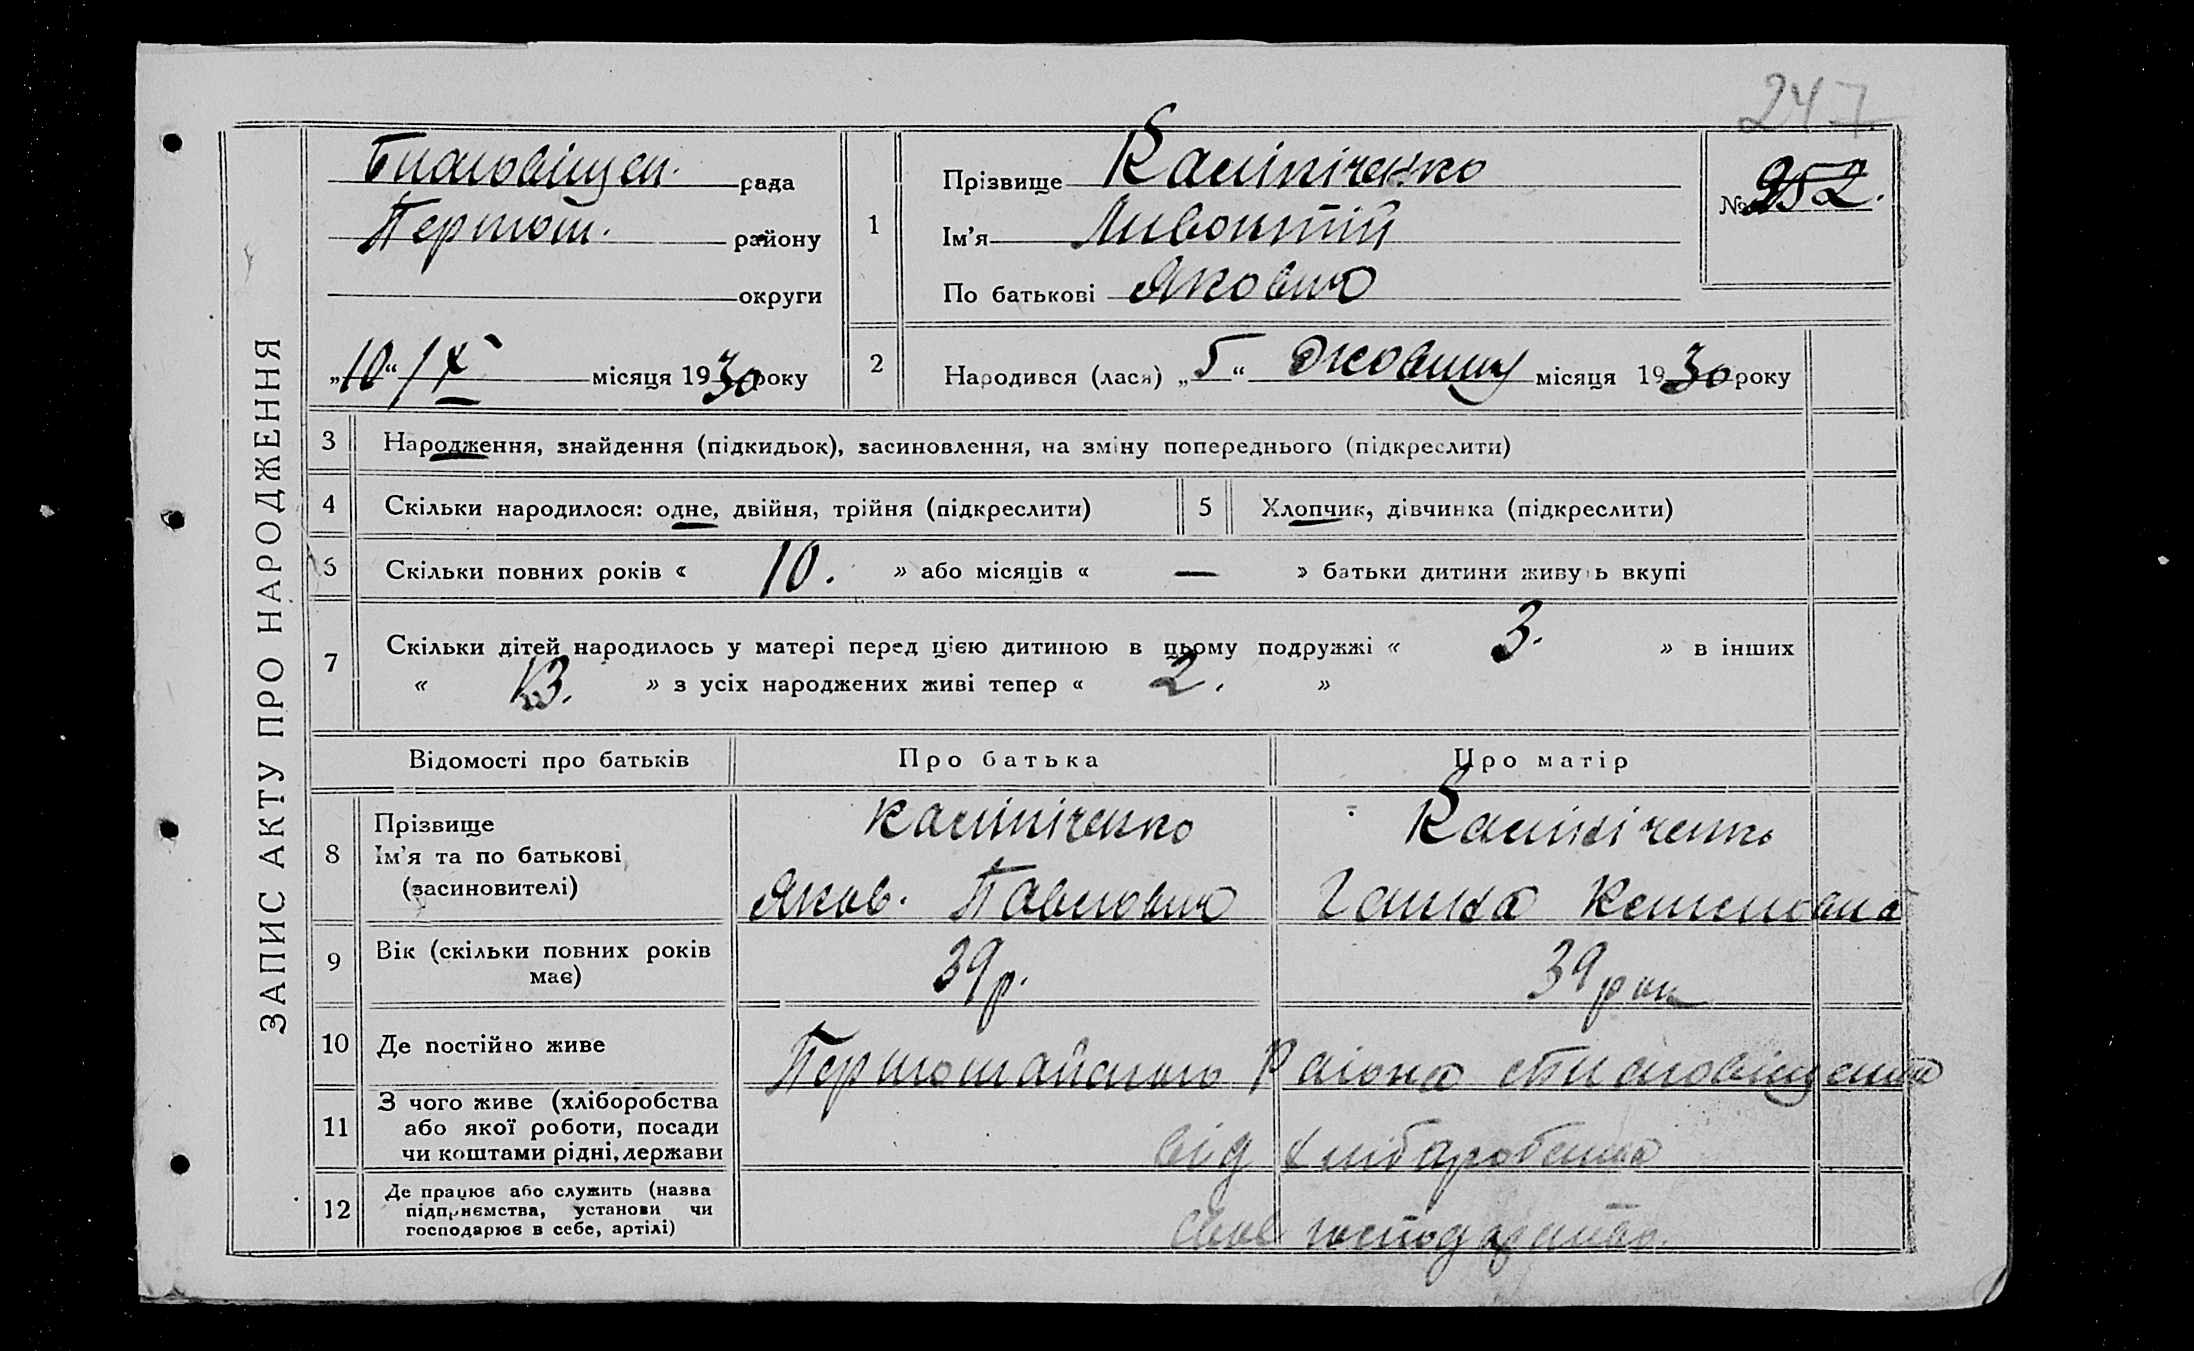 247
ЗАПИС АКТУ ПРО НАРОДЖЕННЯ
рада
Першом. району
округи
„10“ IX місяця 1930 року
1
Прізвище Калініченко
Ім'я
По батькові Якович
№ 252.
2
Народився (лася) „5“ місяця 1930 року
3 Народження, знайдення (підкидьок), засиновлення, на зміну попереднього (підкреслити)
4 Скільки народилося: одне, двійня, трійня (підкреслити)
5 Хлопчик, дівчинка (підкреслити)
6 Скільки повних років « 10. » або місяців « — » батьки дитини живуть вкупі
7 Скільки дітей народилось у матері перед цією дитиною в цьому подружжі « 3. » в інших
« » з усіх народжених живі тепер « 2. »
Відомості про батьків Про батька Про матір
8 Прізвище Калініченко Калініченко
Ім'я та по батькові
(засновителі) Яков. Павлович Ганна
9 Вік (скільки повних років має) 39 р. 39 рок
10 Де постійно живе Першомайського Району
11 З чого живе (хліборобства або якої роботи, посади чи коштами рідні, держави від хліборобства
12 Де працює або служить (назва підприємства, установи чи господарює в себе, артілі) своє господарство.